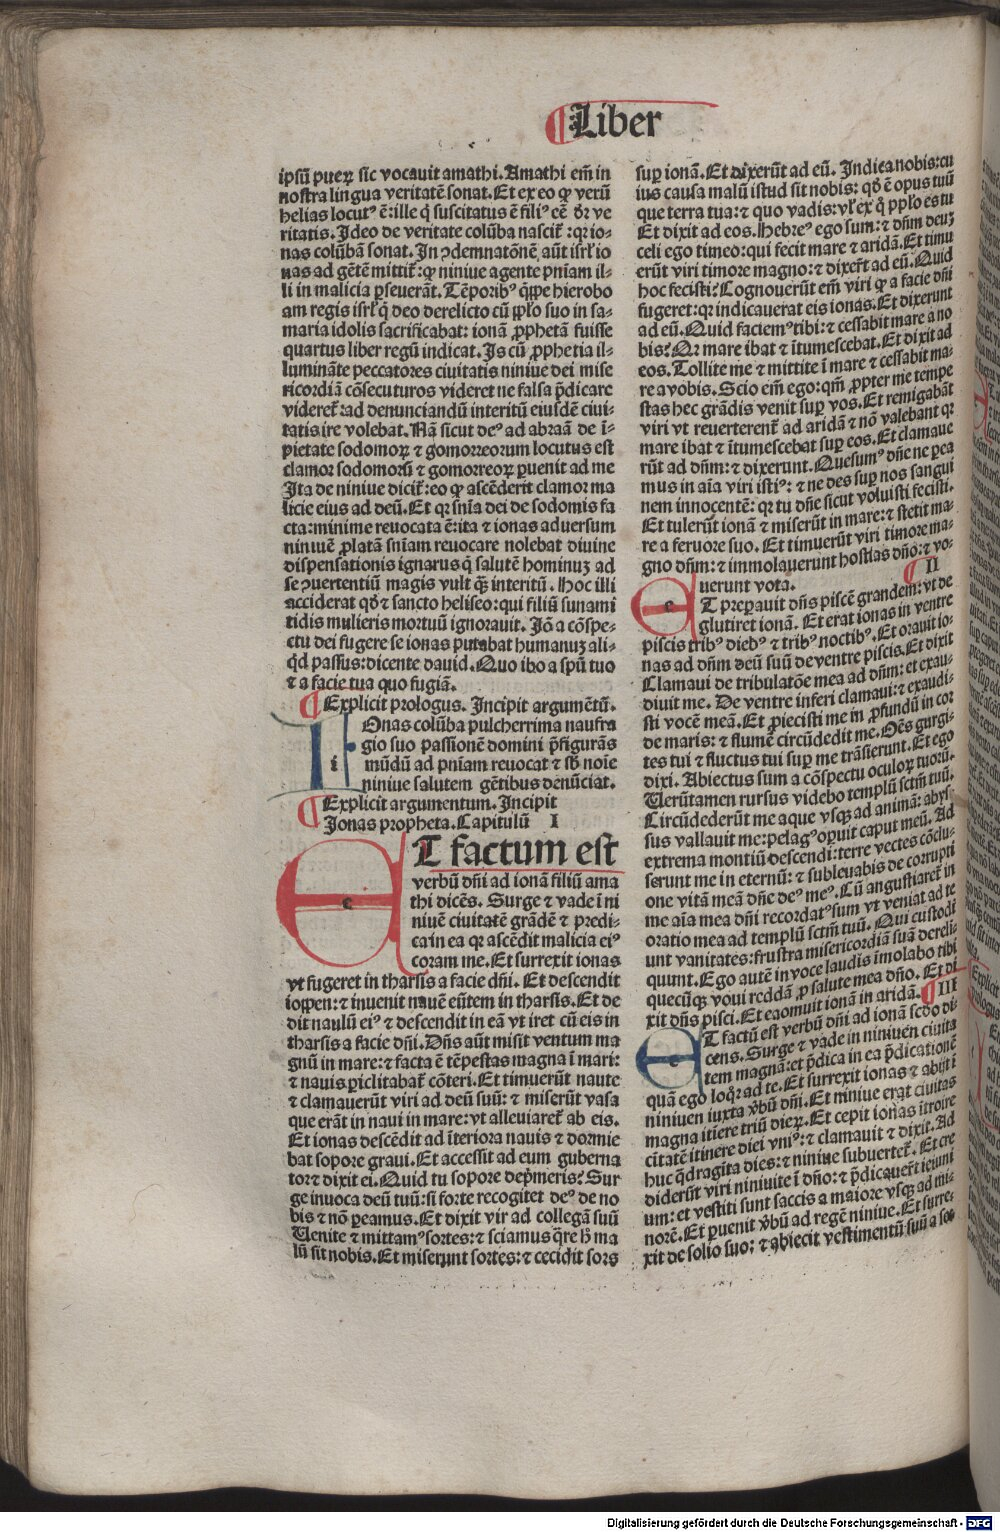 Liber
ipsū pueꝝ sic vocauit amathi. Amathi em̄ in
nostra lingua veritatē sonat. Et ex eo ꝙ verū
helias locutꝰ ē: ille q̄ suscitatus ē filiꝰ eē dr̄ ve
ritatis. Ideo de veritate colūba nascit̄: qꝛ io-
nas colūbā sonat. In ꝯdemnatōnē aūt isrl̄ io
nas ad gētē mittit̄: ꝙ niniue agente pniam il-
li in malicia ꝑseuerāt. Tēporibꝰ q̄ppe hierobo
am regis isrl̄ q̄ deo derelicto cū ip̄lo suo in sa-
maria idolis sacrificabat: ionā ꝓphetā fuisse
quartus liber regū indicat. Is cū ꝓphetia il-
lumināte peccatores ciuitatis niniue dei mise
ricordiā cōsecuturos videret ne falsa p̄dicare
videret̄: ad denunciandū interitū eiusdē ciui-
tatis ire volebat. Nā sicut deꝰ ad abraā de ī-
pietate sodomoꝝ ⁊ gomorreorum locutus est
clamor sodomorū ⁊ gomorreoꝝ ꝑuenit ad me
Ita de niniue dicit̄: eo ꝙ ascēderit clamor ma
licie eius ad deū. Et qꝛ sn̄ia dei de sodomis fa
cta: minime reuocata ē: ita ⁊ ionas aduersum
niniuē ꝓlatā sn̄iam reuocare nolebat diuine
dispensationis ignarus q̄ salutē hominuꝫ ad
se ꝯuertentiū magis vult q̄ꝫ interitū. Hoc illi
acciderat qd̄ ⁊ sancto heliseo: qui filiū sunami
tidis mulieris mortuū ignorauit. Iō a cōspe-
ctu dei fugere se ionas putabat humanuꝫ ali-
q̄d passus: dicente dauid. Quo ibo a spū tuo
⁊ a facie tua quo fugiā.
Explicit prologus. Incipit argumētū.
Ionas colūba pulcherrima naufra
gio suo passionē domini p̄figurās
mūdū ad pn̄iam reuocat ⁊ sb̄ noīe
niniue salutem gētibus denūciat.
Explicit argumentum. Incipit
Jonas propheta. Capitulū I
ET factum est
verbū dn̄i ad ionā filiū ama
thi dicēs. Surge ⁊ vade ī ni
niuē ciuitatē grādē ⁊ predi-
ca in ea qꝛ ascēdit malicia eiꝰ
coram me. Et surrexit ionas
vt fugeret in tharsis a facie dn̄i. Et descendit
ioppen: ⁊ inuenit nauē eūtem in tharsis. Et de
dit naulū eiꝰ ⁊ descendit in eā vt iret cū eis in
tharsis a facie dn̄i. Dn̄s aūt misit ventum ma
gnū in mare: ⁊ facta ē tēpestas magna ī mari:
⁊ nauis ꝑiclitabat̄ cōteri. Et timuerūt naute
⁊ clamauerūt viri ad deū suū: ⁊ miserūt vasa
que erāt in naui in mare: vt alleuiaret̄ ab eis.
Et ionas descēdit ad īteriora nauis ⁊ dormie
bat sopore graui. Et accessit ad eum guberna
tor ⁊ dixit ei. Quid tu sopore dep̄meris? Sur
ge inuoca deū tuū: si forte recogitet deꝰ de no
bis ⁊ nō ꝑeamus. Et dixit vir ad collegā suū
Uenite ⁊ mittamꝰ sortes: ⁊ sciamus q̄re h̄ ma
lū sit nobis. Et miserunt sortes: ⁊ cecidit sors
suꝑ ionā. Et dixerūt ad eū. Indica nobis: cu
ius causa malū istud sit nobis: qd̄ ē opus tuū
que terra tua: ⁊ quo vadis: vl̓ ex q̄ ppl̓o es tu
Et dixit ad eos. Hebreꝰ ego sum: ⁊ dn̄m deuꝫ
celi ego timeo: qui fecit mare ⁊ aridā. Et timu
erūt viri timore magno: ⁊ dixer̄t ad eū. Quid
hoc fecisti? Cognouerūt em̄ viri ꝙ a facie dn̄i
fugeret: qꝛ indicauerat eis ionas. Et dixerunt
ad eū. Quid faciemꝰ tibi: ⁊ cessabit mare a no
bis? Qꝛ mare ibat ⁊ ītumescebat. Et dixit ad
eos. Tollite me ⁊ mittite ī mare ⁊ cessabit ma-
re a vobis. Scio em̄ ego: qm̄ ꝓpter me tempe
stas hec grādis venit suꝑ vos. Et remigabāt
viri vt reuerterent̄ ad aridā ⁊ nō valebant qꝛ
mare ibat ⁊ ītumescebat suꝑ eos. Et clamaue
rūt ad dn̄m: ⁊ dixerunt. Quesumꝰ dn̄e ne ꝑea
mus in aīa viri istiꝰ: ⁊ ne des suꝑ nos sangui
nem innocentē: qꝛ tu dn̄e sicut voluisti fecisti.
Et tulerūt ionā ⁊ miserūt in mare: ⁊ stetit ma-
re a feruore suo. Et timuerūt viri timore ma-
gno dn̄m: ⁊ immolauerunt hostias dn̄o: ⁊ vo-
uerunt vota. II
ET preꝑauit dn̄s piscē grandem: vt de
glutiret ionam. Et erat ionas in ventre
piscis tribꝰ diebꝰ ⁊ tribꝰ noctibꝰ. Et orauit io-
nas ad dn̄m deū suū de ventre piscis. Et dixit
Clamaui de tribulatōe mea ad dn̄m: et exau-
diuit me. De ventre inferi clamaui: ⁊ exaudi-
sti vocē meā. Et ꝓiecisti me in ꝓfundū in cor
de maris: ⁊ flumē circūdedit me. Oēs gurgi-
tes tui ⁊ fluctus tui suꝑ me trāsierunt. Et ego
dixi. Abiectus sum a cōspectu oculoꝝ tuorū.
Uerūtamen rursus videbo templū sctm̄ tuū.
Circūdederūt me aque vsqꝫ ad animā: abys-
sus vallauit me: pelagꝰ oꝑuit caput meū. Ad
extrema montiū descendi: terre vectes cōclu-
serunt me in eternū: ⁊ subleuabis de corrupti
one vitā meā dn̄e deꝰ meꝰ. Cū angustiaret̄ in
me aīa mea dn̄i recordatꝰ sum vt veniat ad te
oratio mea ad templū sctm̄ tuū. Qui custodi
unt vanitates: frustra misericordiā suā dereli-
quunt. Ego autē in voce laudis īmolabo tibi
quecūqꝫ voui reddā ꝓ salute mea dn̄o. Et di
xit dn̄s pisci. Et eaomuit ionā in aridā. III
ET factū est verbū dn̄i ad ionā scd̄o di-
cens. Surge ⁊ vade in niniuen ciuita
tem magnā: et p̄dica in ea p̄dicationē
quā ego loqꝛ ad te. Et surrexit ionas ⁊ abijt ī
niniuen iuxta v̄bū dn̄i. Et niniue erat ciuitas
magna itinere triū dieꝝ. Et cepit ionas ītroire
ciuitatē itinere diei vniꝰ: ⁊ clamauit ⁊ dixit. Ad
huc q̄dragita dies: ⁊ niniue subuertet̄. Et cre
diderūt viri niniuite ī dn̄o: ⁊ p̄dicauer̄t ieiuni
um: et vestiti sunt saccis a maiore vsqꝫ ad mi-
norē. Et ꝑuenit v̄bū ad regē niniue. Et surre-
xit de solio suo: ⁊ abiecit vestimentū suū a se
Digitalisierung gefördert durch die Deutsche Forschungsgemeinschaft - DFG